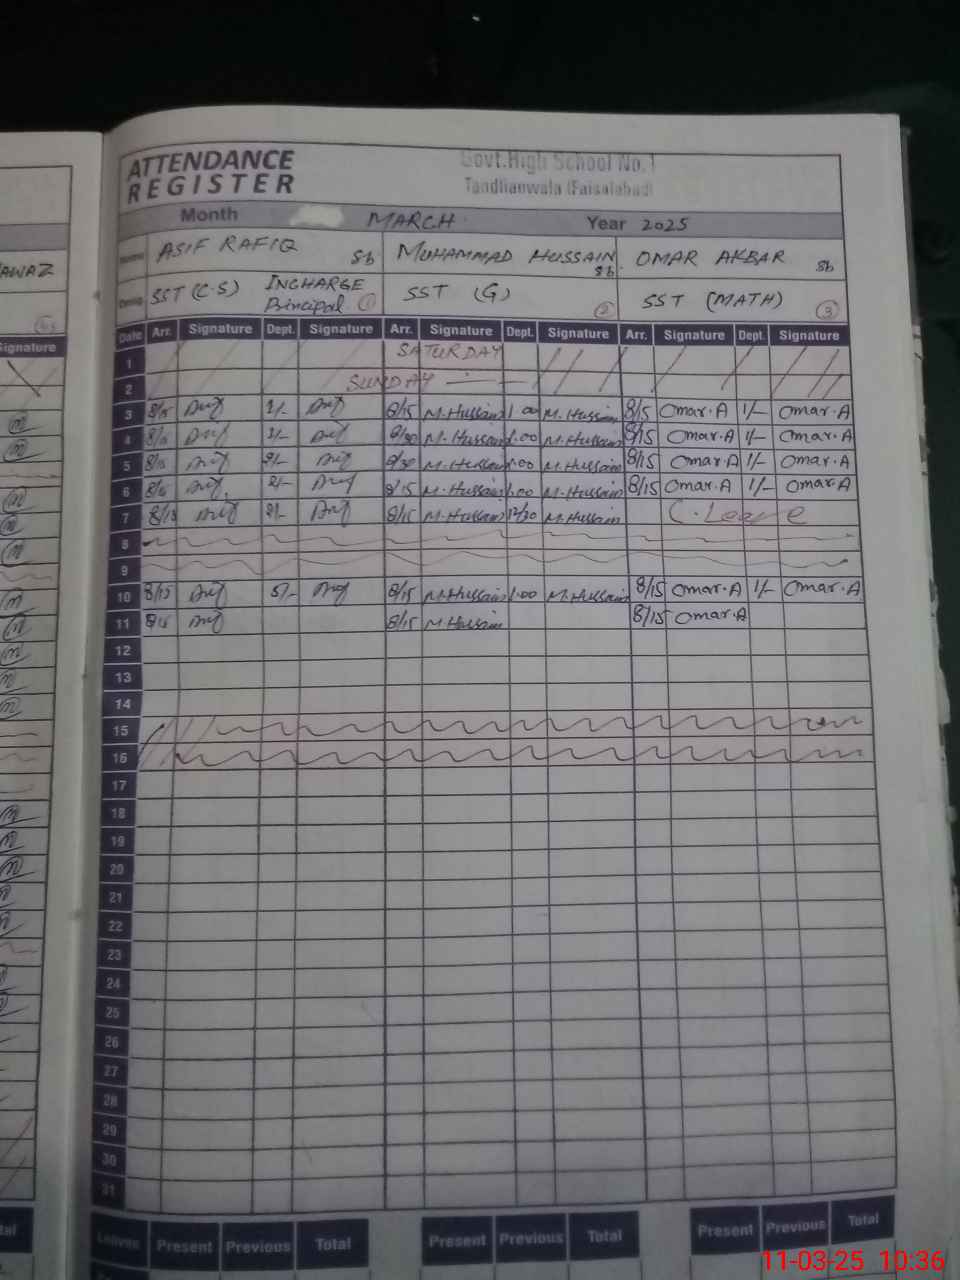 ATTENDANCE
REGISTER
Govt.High School No.1
Tandlianwala (Faisalabad)
Month MARCH Year 2025
AWAZ
ASIF RAFIQ Sb MUHAMMAD HUSSAIN Sb. OMAR AKBAR Sb
SST (C.S) INCHARGE Principal 1 SST (G) 2 SST (MATH) 3
Signature
Date Arr. Signature Dept. Signature Arr. Signature Dept. Signature Arr. Signature Dept. Signature
1 SATURDAY
2 SUNDAY
3 8/15 1/- 8/15 M.Hussain 1.00 M.Hussain 8/15 Omar.A 1/- Omar.A
4 8/15 1/- 8/30 M.Hussain 1.00 M.Hussain 8/15 Omar.A 1/- Omar.A
5 8/15 2/- 8/30 M.Hussain 1.00 M.Hussain 8/15 Omar.A 1/- Omar.A
6 8/15 2/- 8/15 M.Hussain 1.00 M.Hussain 8/15 Omar.A 1/- Omar.A
7 8/15 2/- 8/15 M.Hussain 12/30 M.Hussain C.Leave
8
9
10 8/15 5/- 8/15 M.Hussain 1.00 M.Hussain 8/15 Omar.A 1/- Omar.A
11 8/15 8/15 M.Hussain 8/15 Omar.A
12
13
14
15
16
17
18
19
20
21
22
23
24
25
26
27
28
29
30
31
Leaves Present Previous Total Present Previous Total Present Previous Total
11-03-25 10:36